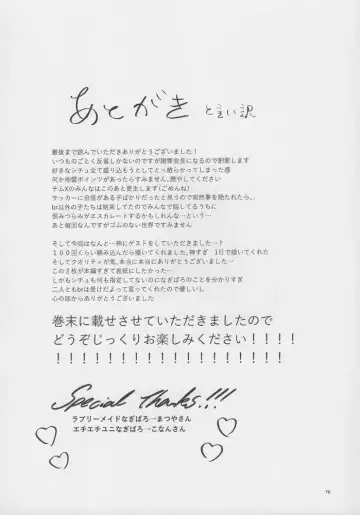 あとがき と言い訳
最後まで読んでいただきありがとうございました！
いつものごとく反省しかないのですが謝罪会見になるので割愛します
好きなシチュ全て盛り込もうとしてとっ散らかってしまった感
何か地雷ポイントがあったらすみません、燃やしてください
チムXのみんなはこのあと更生します（ごめんね）
サッカーに自信がある子ばかりだったと思うので突然夢を絶たれたら、、
br以外の子たちは結束してたのでみんなで話してるうちに
恨みつらみがエスカレートするかもしれんな…という
あと毎回なんですがゴムのない世界ですみません
そして今回はなんと…神にゲストをしていただきました…！
100回くらい頼み込んだら描いてくれました、神すぎ 1日で描いてくれた
そしてクオリティが鬼、本当に本当にありがとうございました…
この2枚が本編すぎて表紙にしたかった…
しかもシチュも何も指定してないのになぎばろのことを分かりすぎ
二人ともbrは受けだよって言ってくれたので優しいし
心の底からありがとうございました
巻末に載せさせていただきましたので
どうぞじっくりお楽しみください！！！！
！！！！！！！！！！！！！！！！！！
Special Thanks!!!
ラブリーメイドなぎばろ→まつやさん
エチエチユニなぎばろ→こなんさん
76